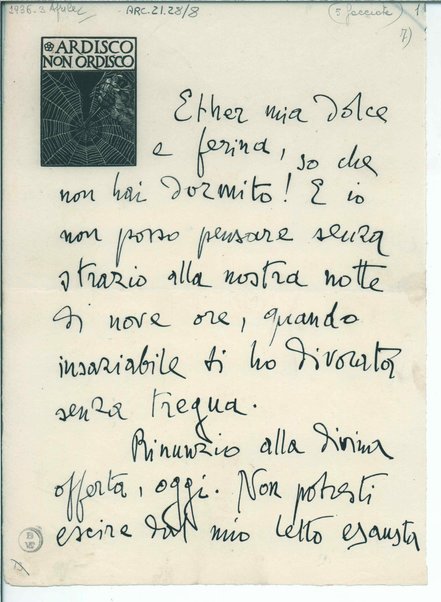 1936. 3 Aprile
ARC.21.28/8
(5 facciate)
1
7)
ARDISCO
NON ORDISCO
Ether mia dolce
e ferina, so che
non hai dormito! E io
non posso pensare senza
strazio alla nostra notte
di nove ore, quando
insaziabile ti ho divorata
senza tregua.
Rinunzio alla divina
offerta, oggi. Non potresti
escire dal mio letto esausta